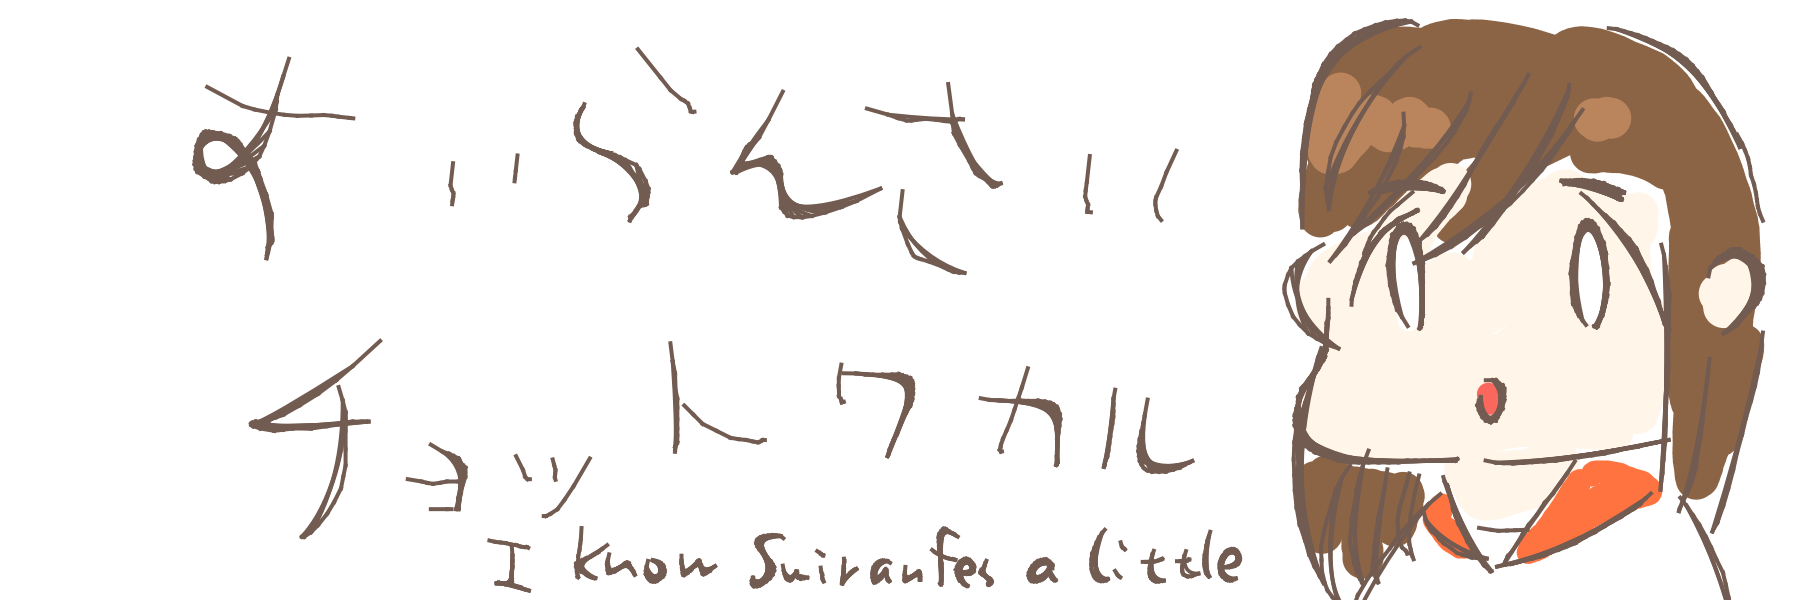 すいらんさい
チョットワカル
I know Suiranfes a little